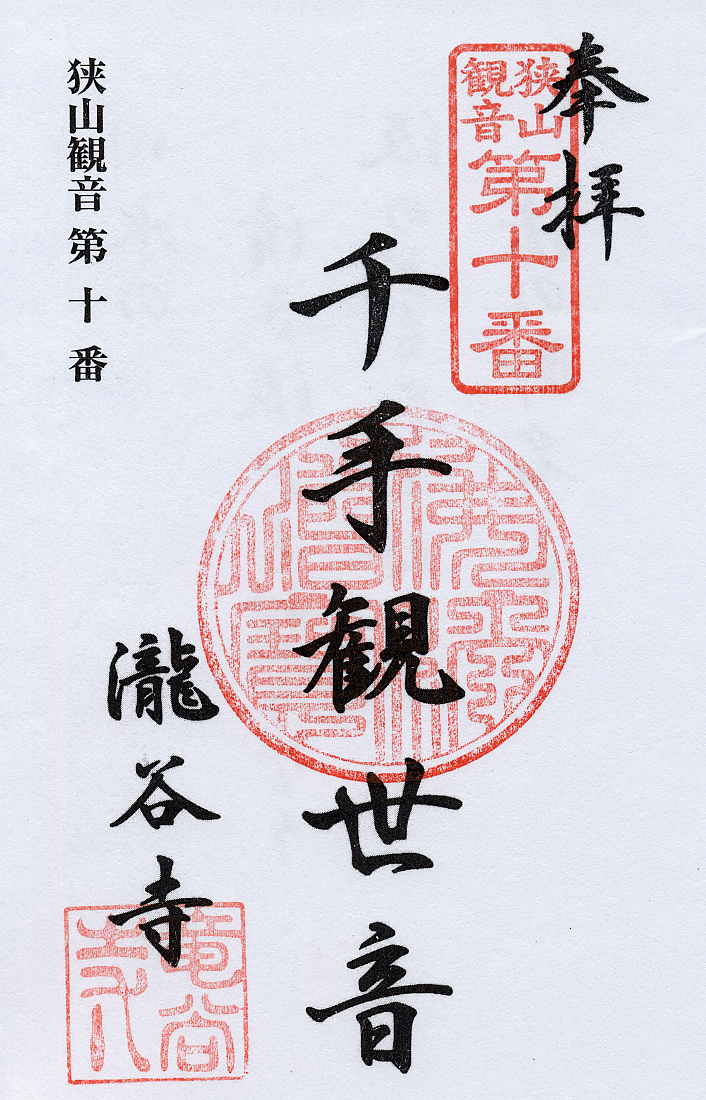 奉拝
狭山
観音
第十番
千手観世音
瀧谷寺
狭山観音 第十番